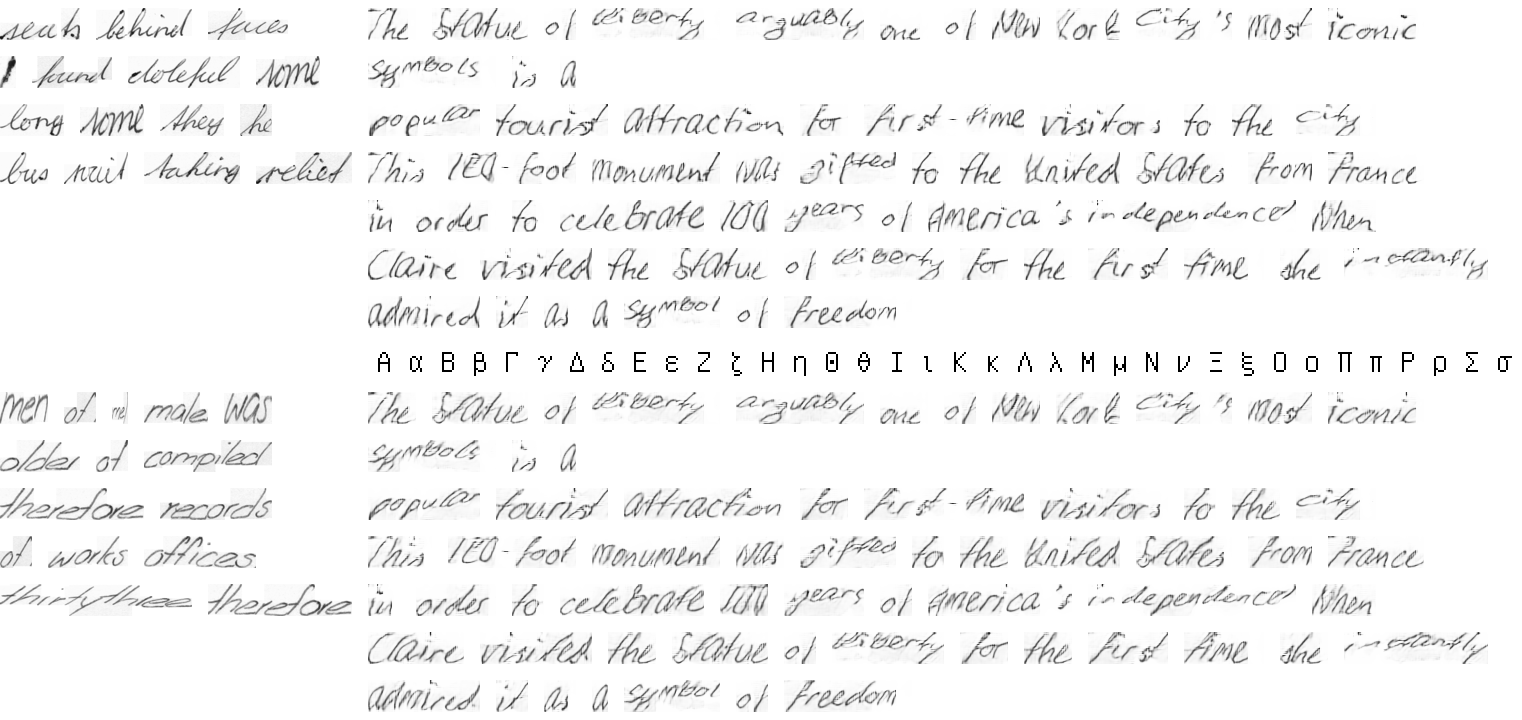 seats behind faces
I found doleful some
long some they he
bus nail taking relief
The Statue of Liberty arguably one of New York City's most iconic
symbols is a
popular tourist attraction for first-time visitors to the city
This foot monument was gifted to the United States from France
in order to celebrate 100 years of America's independence When
Claire visited the Statue of Liberty for the first time she instantly
admired it as a symbol of freedom
Α α Β β Γ γ Δ δ Ε ε Ζ ζ Η η Θ θ Ι ι Κ κ Λ λ Μ μ Ν ν Ξ ξ Ο ο Π π Ρ ρ Σ σ
men of. male was
older of compiled
therefore records
of. works offices.
thirtythree therefore
The Statue of Liberty arguably one of New York City's most iconic
symbols is a
popular tourist attraction for first-time visitors to the city
This foot monument was gifted to the United States from France
in order to celebrate 100 years of America's independence When
Claire visited the Statue of Liberty for the first time she instantly
admired it as a symbol of freedom